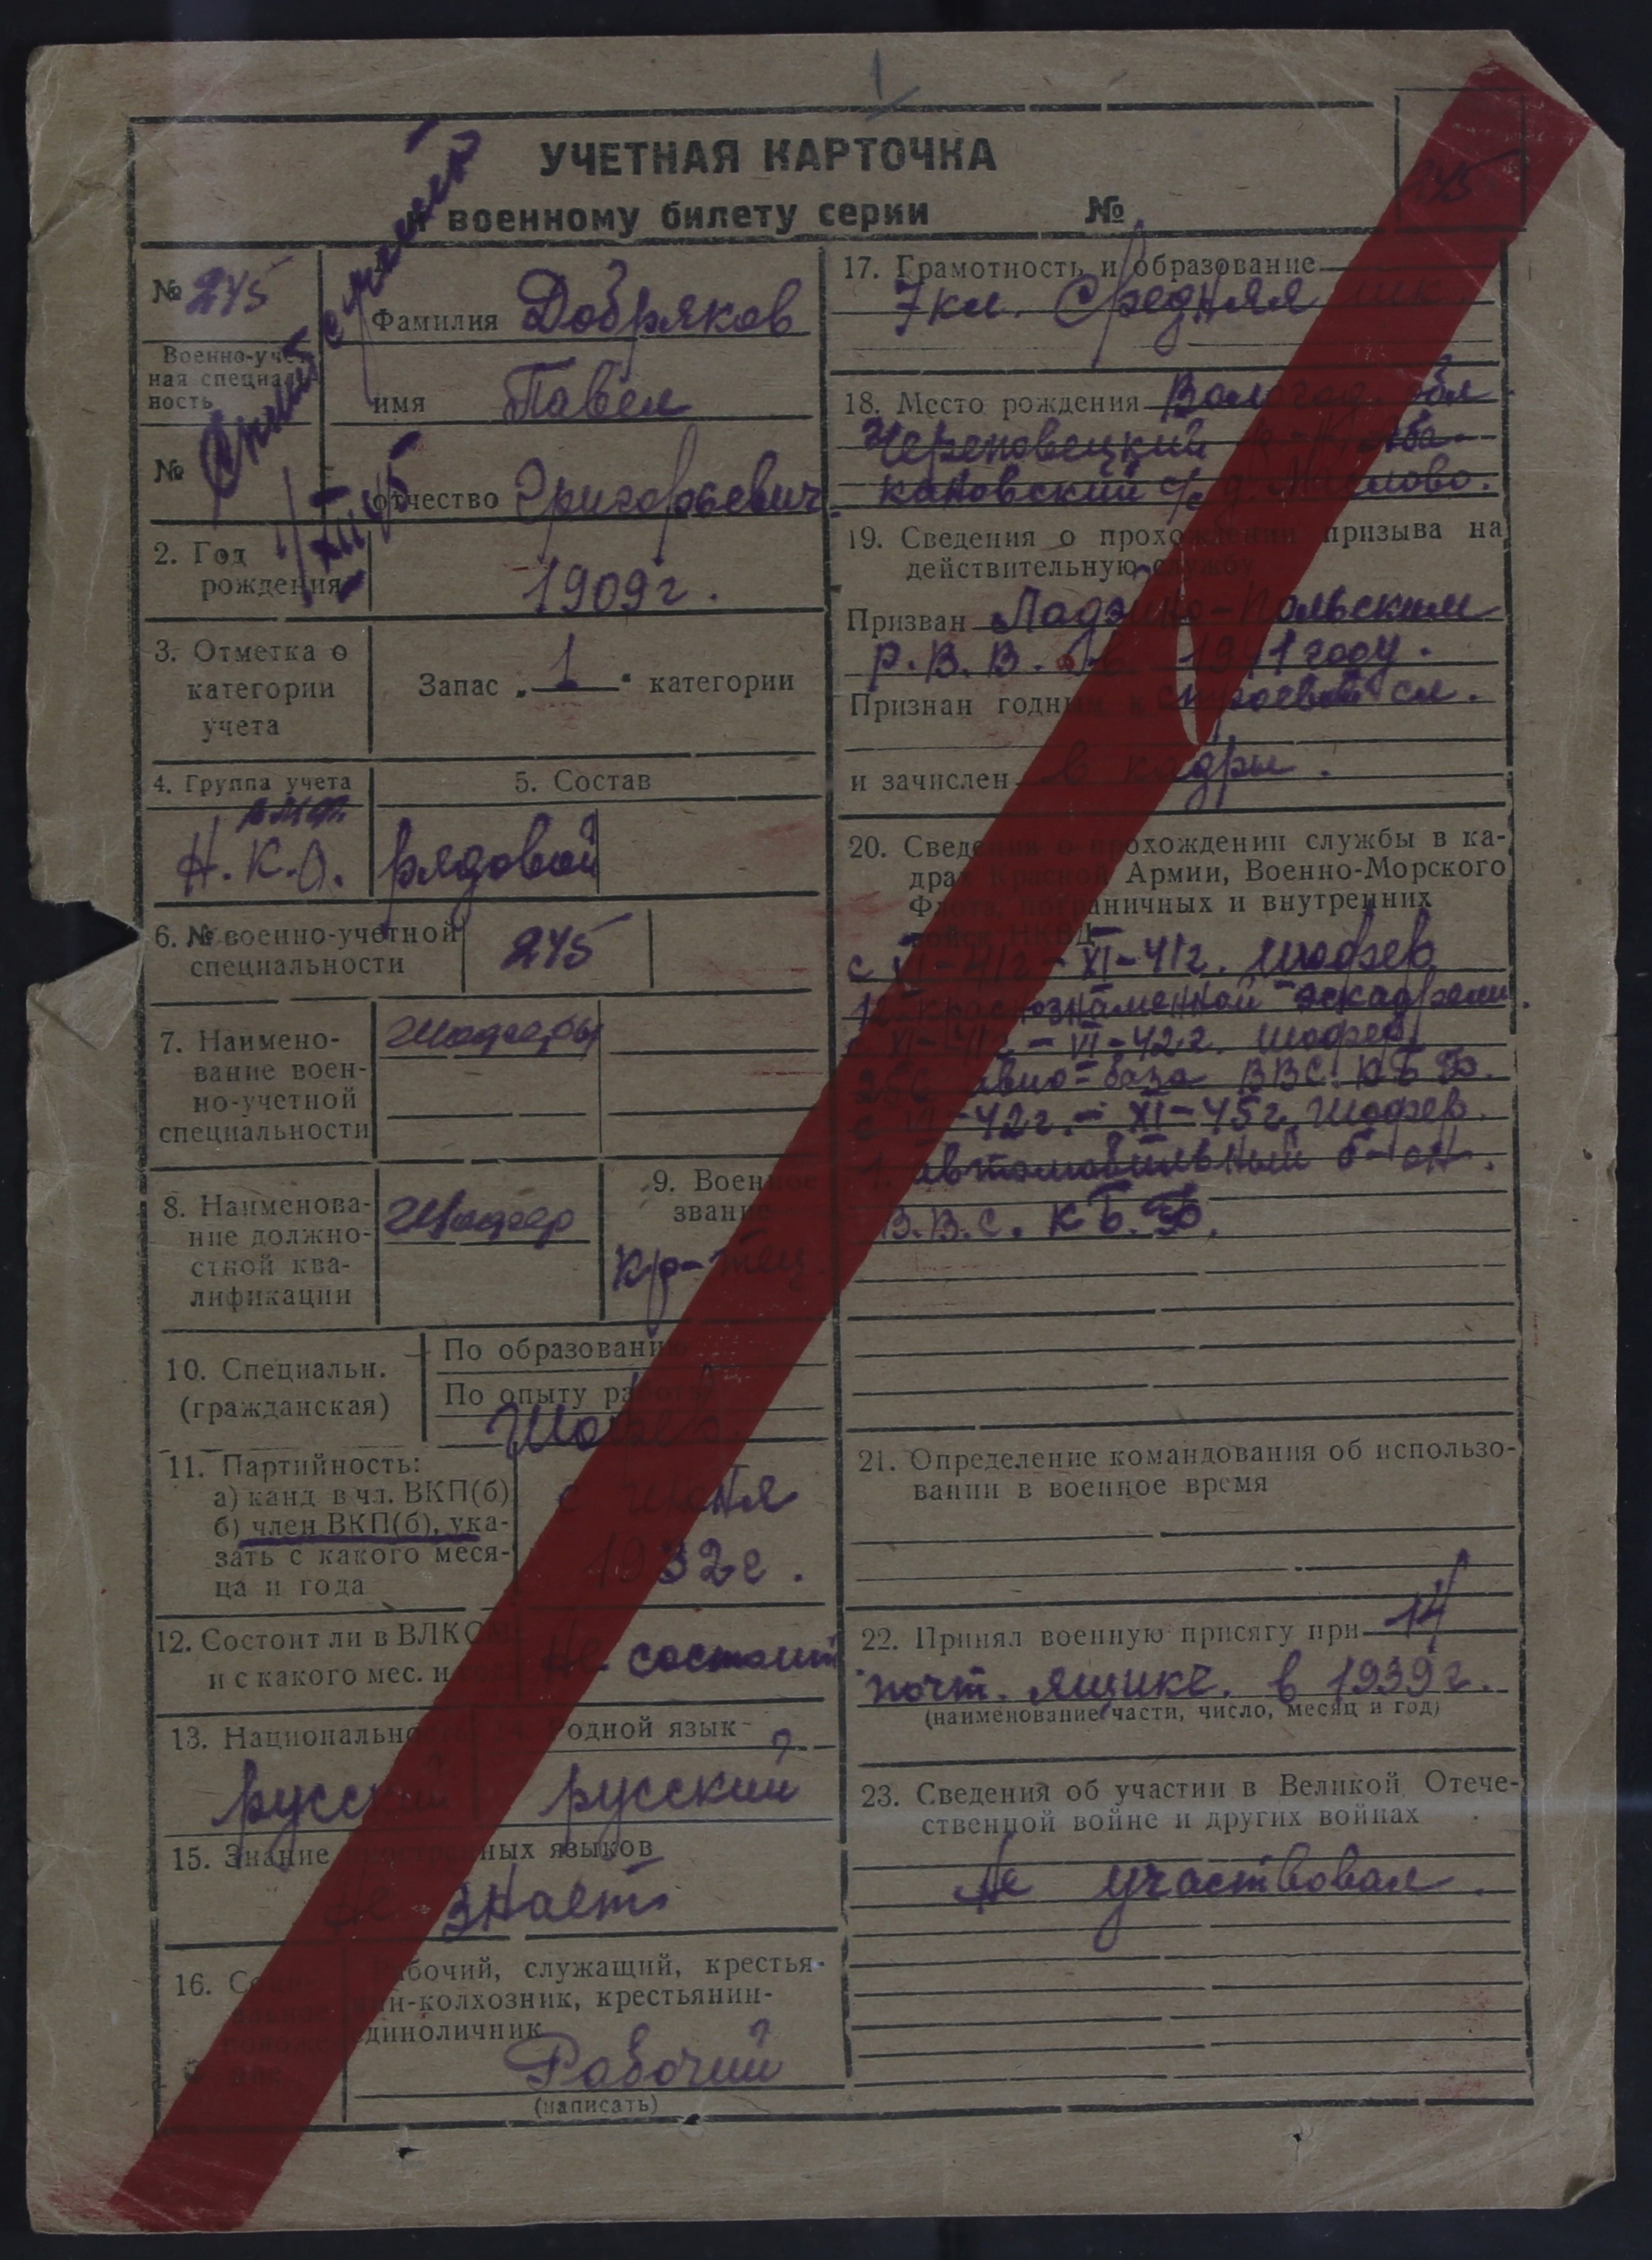 УЧЕТНАЯ КАРТОЧКА
к военному билету серии №
245
№ 245
Военно-учет-
ная специаль-
ность
№
Снят с учета
XII 45
Фамилия Добряков
имя Павел
отчество Григорьевич
2. Год
рождения
1909 г.
3. Отметка о
категории
учета
Запас „1“ категории
4. Группа учета
Н.К.О.
5. Состав
рядовой
6. № военно-учетной
специальности
245
7. Наимено-
вание воен-
но-учетной
специальности
Шоферы
8. Наименова-
ние должно-
стной ква-
лификации
Шофер
9. Военное
звание
кр-нец
10. Специальн.
(гражданская)
По образованию
По опыту работы
Шофер.
11. Партийность:
а) канд в чл. ВКП(б)
б) член ВКП(б), ука-
зать с какого меся-
ца и года
с июня
1932 г.
12. Состоит ли в ВЛКСМ
и с какого мес. и года
Не состоит
13. Национальность
русский
14. Родной язык
русский
15. Знание иностранных языков
Не знает
16. Соци-
альное
положе-
ние
Рабочий, служащий, крестья-
нин-колхозник, крестьянин-
единоличник
Рабочий
(написать)
17. Грамотность и образование
7 кл. Средняя шк.
18. Место рождения Вологод. обл
Череповецкий
кановский с/с д.
19. Сведения о прохождении призыва на
действительную службу
Призван Ладейно-Польским
Р.В.В. 1941 году.
Признан годным к строевой сл.
и зачислен в кадры.
20. Сведения о прохождении службы в ка-
драх Красной Армии, Военно-Морского
Флота, пограничных и внутренних
войск НКВД
с VI-41г - XI-41г. шофер
12 краснознаменной эскадрели.
XI-41г - VI-42г. шофер
авиа-база ВВС. КБФ.
с VI-42г. - XI-45г. Шофер.
1. автомобильный б-он.
В.В.С. КБ.Ф.
21. Определение командования об использо-
вании в военное время
22. Принял военную присягу при 14
почт. ящике. в 1939 г.
(наименование части, число, месяц и год)
23. Сведения об участии в Великой Отече-
ственной войне и других войнах
Не участвовал.